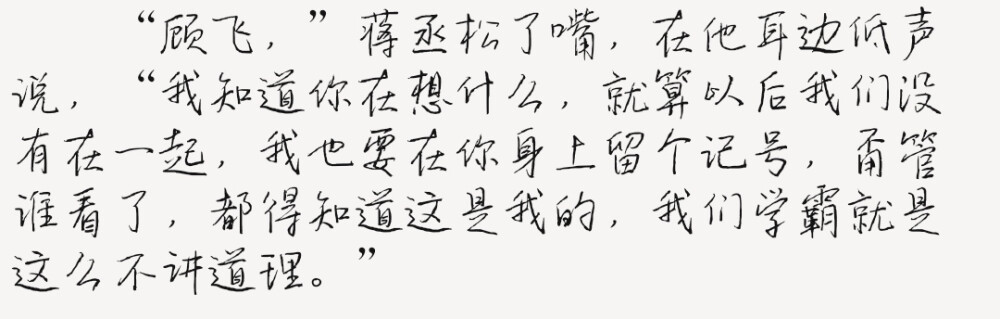 “顾飞，”蒋丞松了嘴，在他耳边低声
说，“我知道你在想什么，就算以后我们没
有在一起，我也要在你身上留个记号，甭管
谁看了，都得知道这是我的，我们学霸就是
这么不讲道理。”